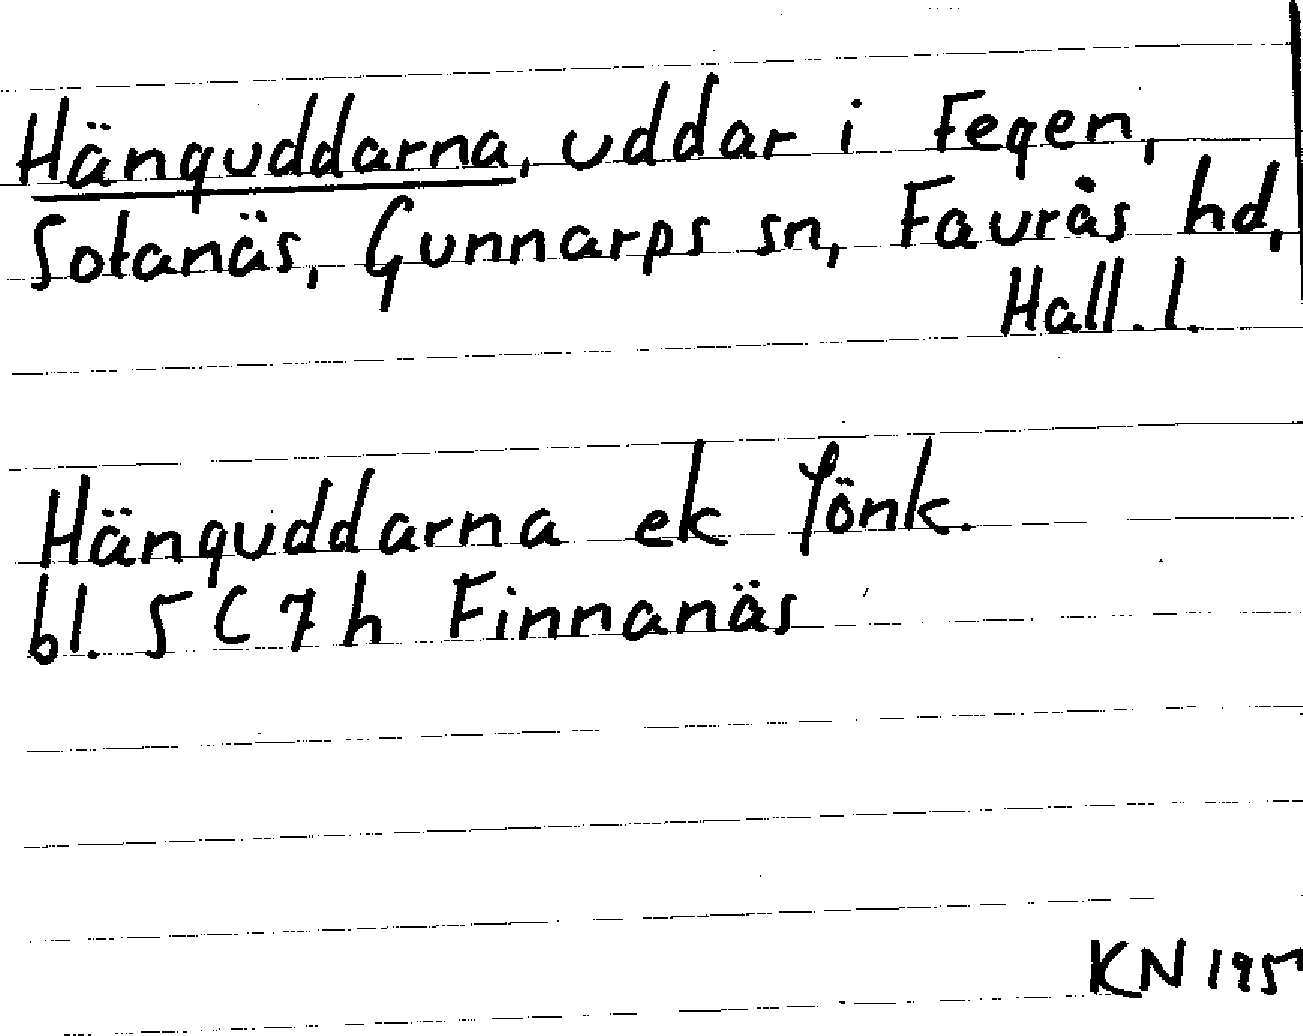 Hänguddarna, uddar i Fegen,
Sotanäs, Gunnarps sn, Faurås hd,
Hall. l.
Hänguddarna ek Jönk.
bl. 5 C 7 h Finnanäs
KN 195